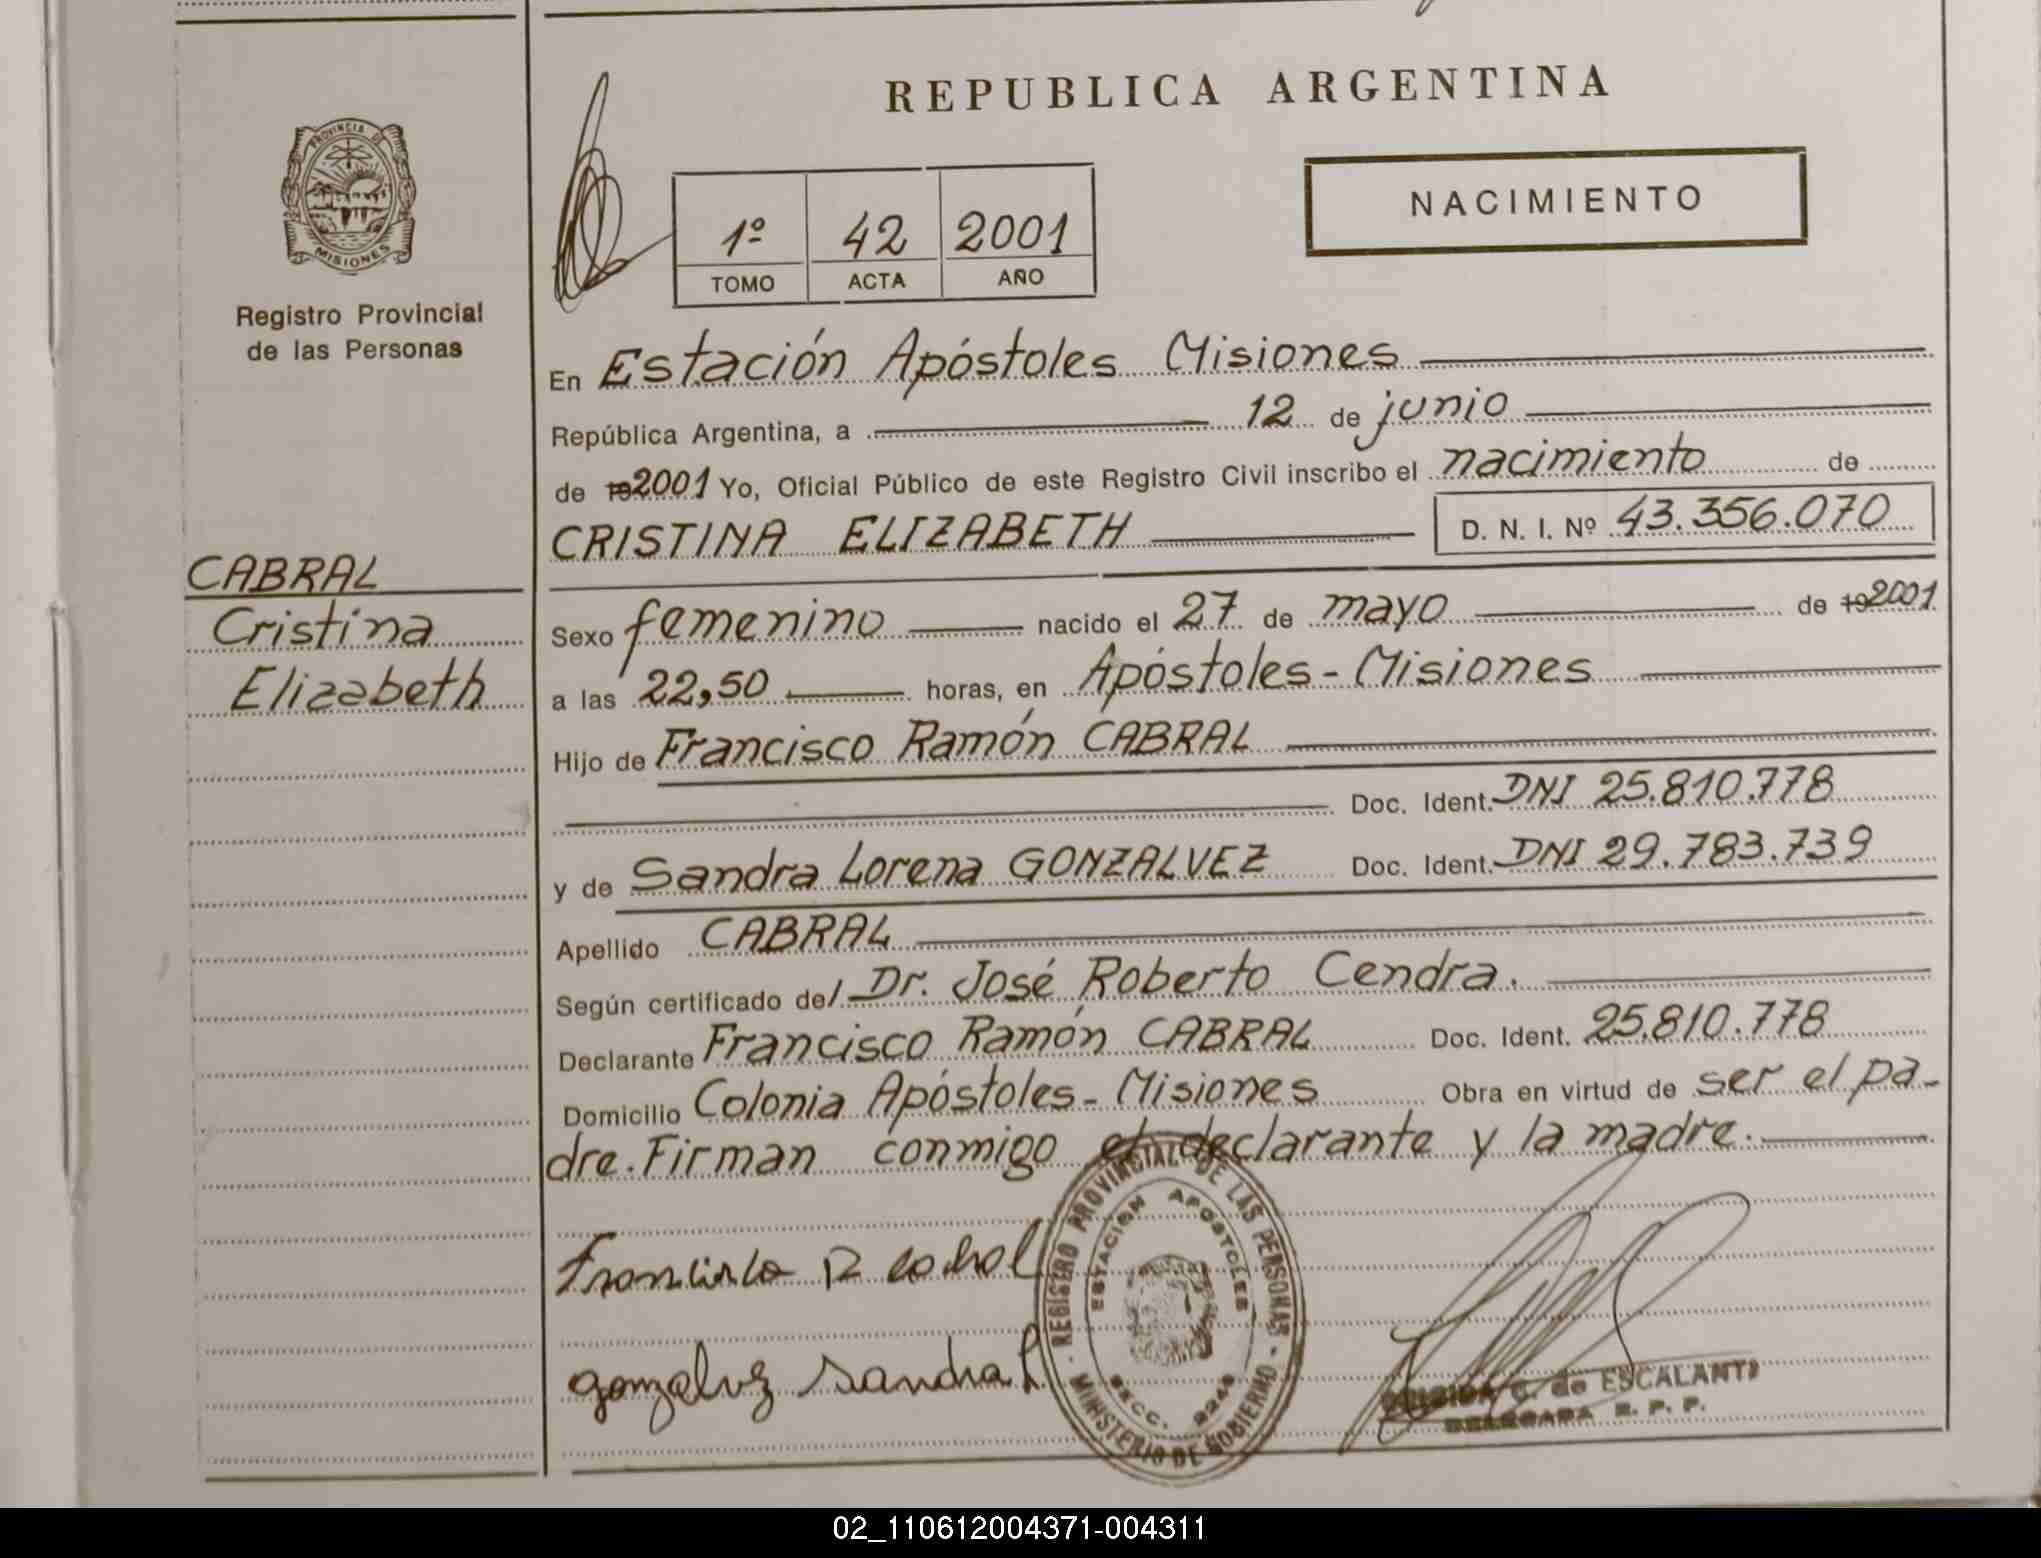 REPUBLICA ARGENTINA
PROVINCIA DE MISIONES
Registro Provincial
de las Personas
1º 42 2001
TOMO ACTA AÑO
NACIMIENTO
CABRAL
Cristina
Elizabeth
En Estación Apóstoles Misiones
República Argentina, a 12 de junio
de 19 2001 Yo, Oficial Público de este Registro Civil inscribo el nacimiento de
CRISTINA ELIZABETH D. N. I. Nº 43.356.070
Sexo femenino nacido el 27 de mayo de 19 2001
a las 22,50 horas, en Apóstoles - Misiones
Hijo de Francisco Ramón CABRAL
Doc. Ident. DNI 25.810.778
y de Sandra Lorena GONZALVEZ Doc. Ident. DNI 29.783.739
Apellido CABRAL
Según certificado del Dr. José Roberto Cendra.
Declarante Francisco Ramón CABRAL Doc. Ident. 25.810.778
Domicilio Colonia Apóstoles - Misiones Obra en virtud de ser el pa-
dre. Firman conmigo el declarante y la madre.
REGISTRO PROVINCIAL DE LAS PERSONAS - MINISTERIO DE GOBIERNO -
ESTACION APOSTOLES
SECC.
Francisco R Cabral
gonzalvez Sandra L
G. de ESCALANTE
DELEGADA R. P. P.
02_110612004371-004311